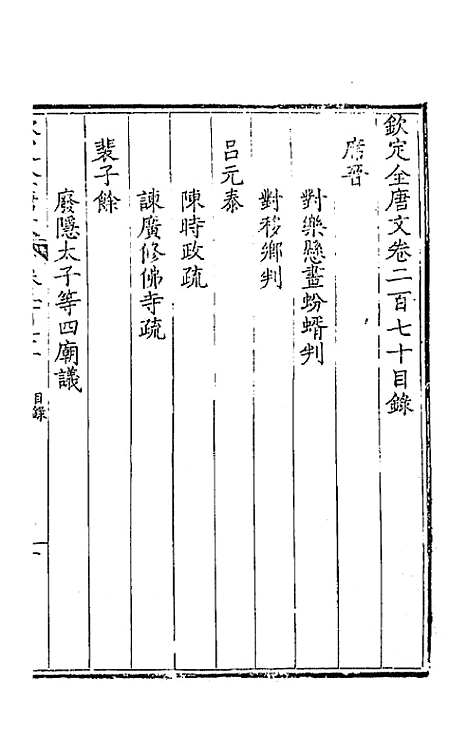 欽定全唐文卷二百七十目錄
席晉
對樂懸畫蚡蝑判
對移鄉判
呂元泰
陳時政疏
諫廣修佛寺疏
裴子餘
廢隱太子等四廟議
目錄